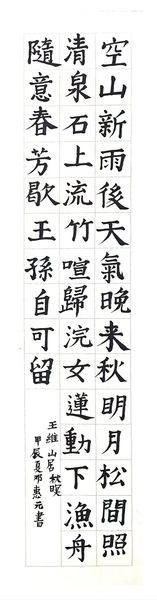 空山新雨後天氣晚来秋明月松間照
清泉石上流竹喧歸浣女蓮動下漁舟
隨意春芳歇王孫自可留
王維山居秋暝
甲辰夏邓惠元書